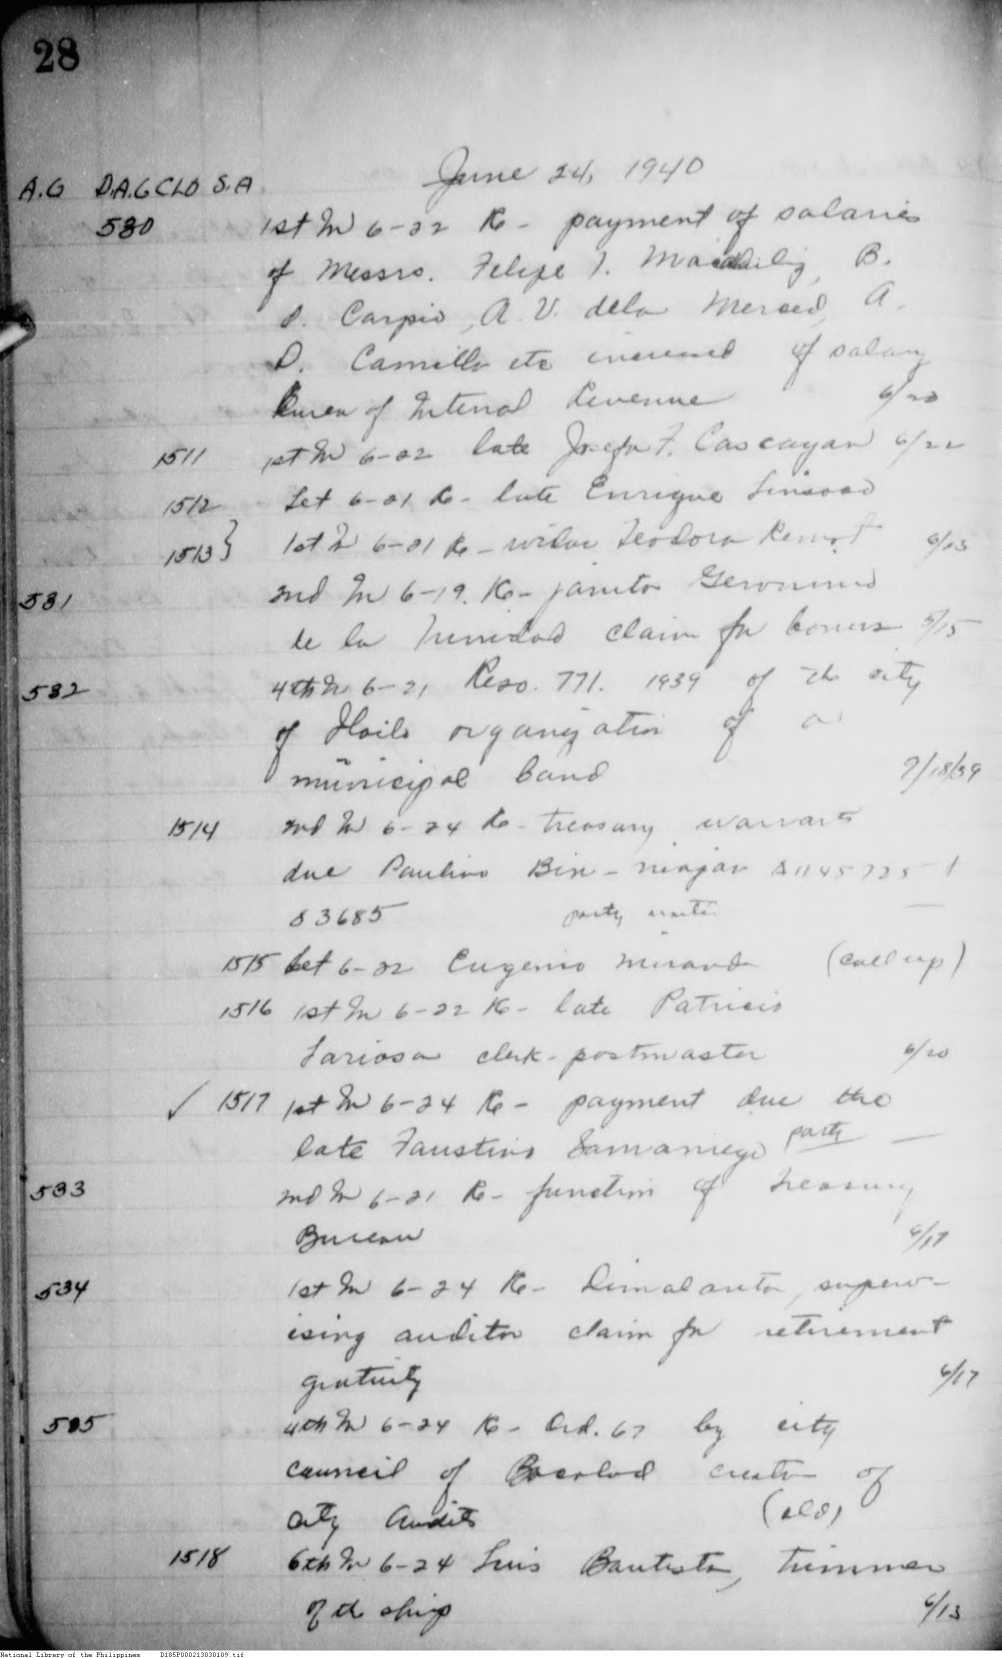 28
June 24, 1940
A.G D.A.G CLO S.A
530 1st In 6-22 Re - payment of salaries
of Messrs. Felipe T. B.
S. Carpio, A. V. dela Merced, A.
D. Camillo etc increase of salary
Bureau of Internal Revenue 6/20
1511 1st In 6-22 late Josefa F. Cascayan 6/22
1512 Let 6-21 Re - late Enrique
1513} 1st In 6-21 Re - widow Teodora 6/13
531 2nd In 6-19. Re - janitor Geronimo
de la Trinidad claim for bonus 5/15
532 4th In 6-21 Reso. 771. 1939 of the city
of Iloilo organization of a
municipal band 7/18/39
1514 2nd In 6-24 Re - treasury warrants
due Paulino Bin-
S3685 party
1515 Let 6-22 Eugenio Miranda (call up)
1516 1st In 6-22 Re - late Patricio
Lariosa clerk-postmaster 6/20
✓ 1517 1st In 6-24 Re - payment due the
late Faustino Samaniego party —
533 2nd In 6-21 Re - function of Treasury
Bureau 6/17
534 1st In 6-24 Re - Dimalanta, superv-
ising auditor claim for retirement
gratuity 6/17
535 4th In 6-24 Re - Ord. 67 by city
council of Bacolod creation of
City Audits (old)
1518 6th In 6-24 Luis Bautista, trimmer
of the ship 6/13
National Library of the Philippines D185P000213030109.tif